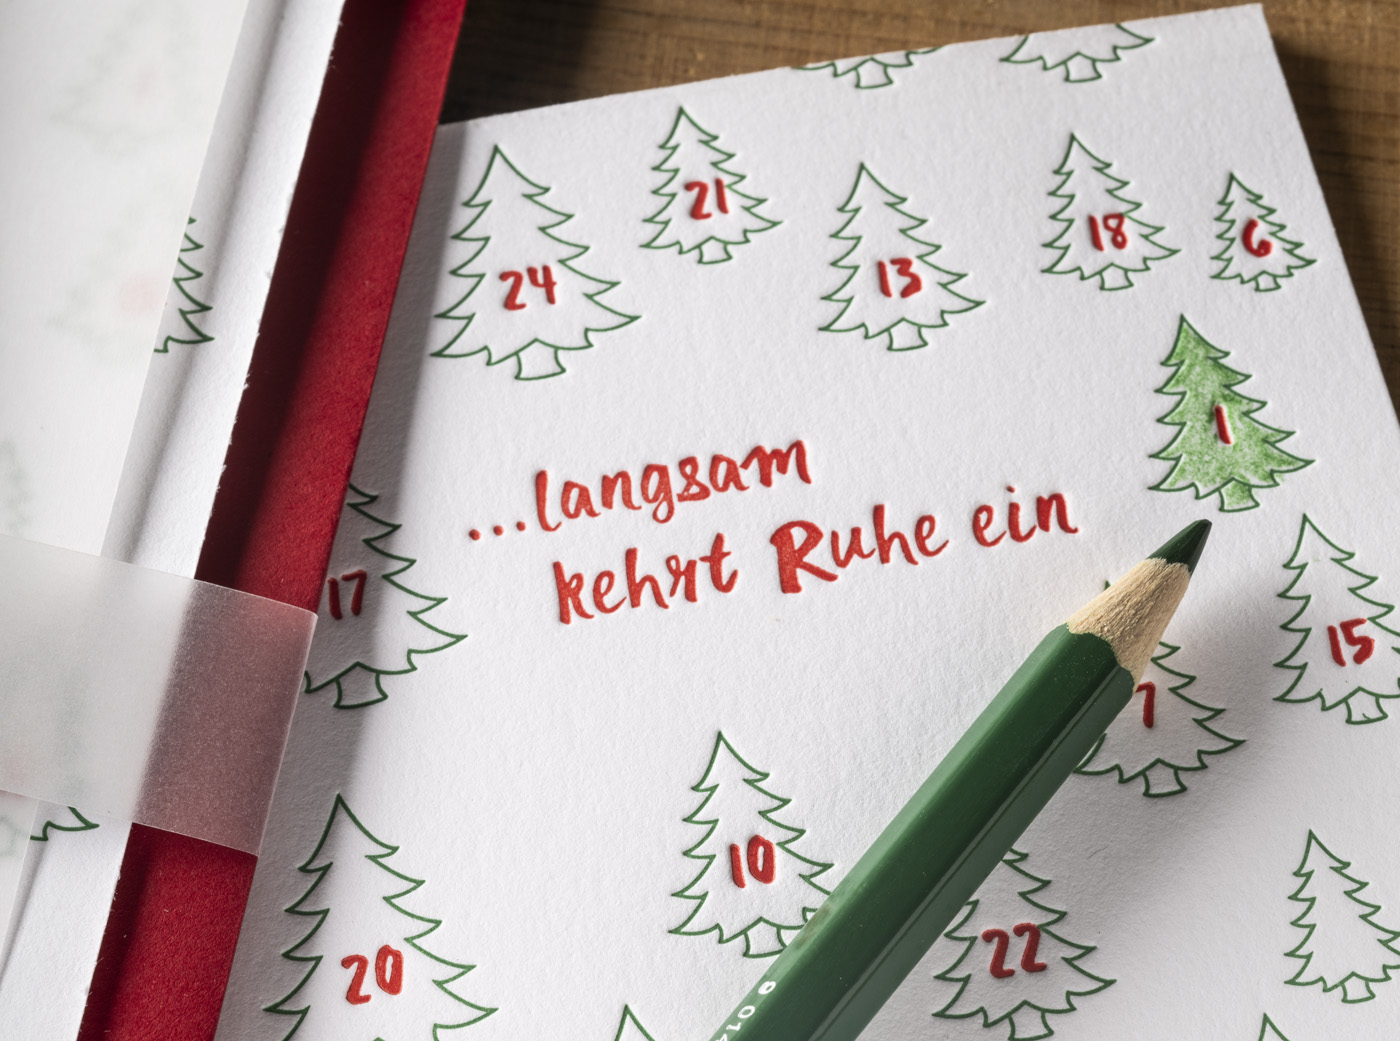 21
18
6
24
13
1
...langsam
kehrt Ruhe ein
17
15
7
10
22
20